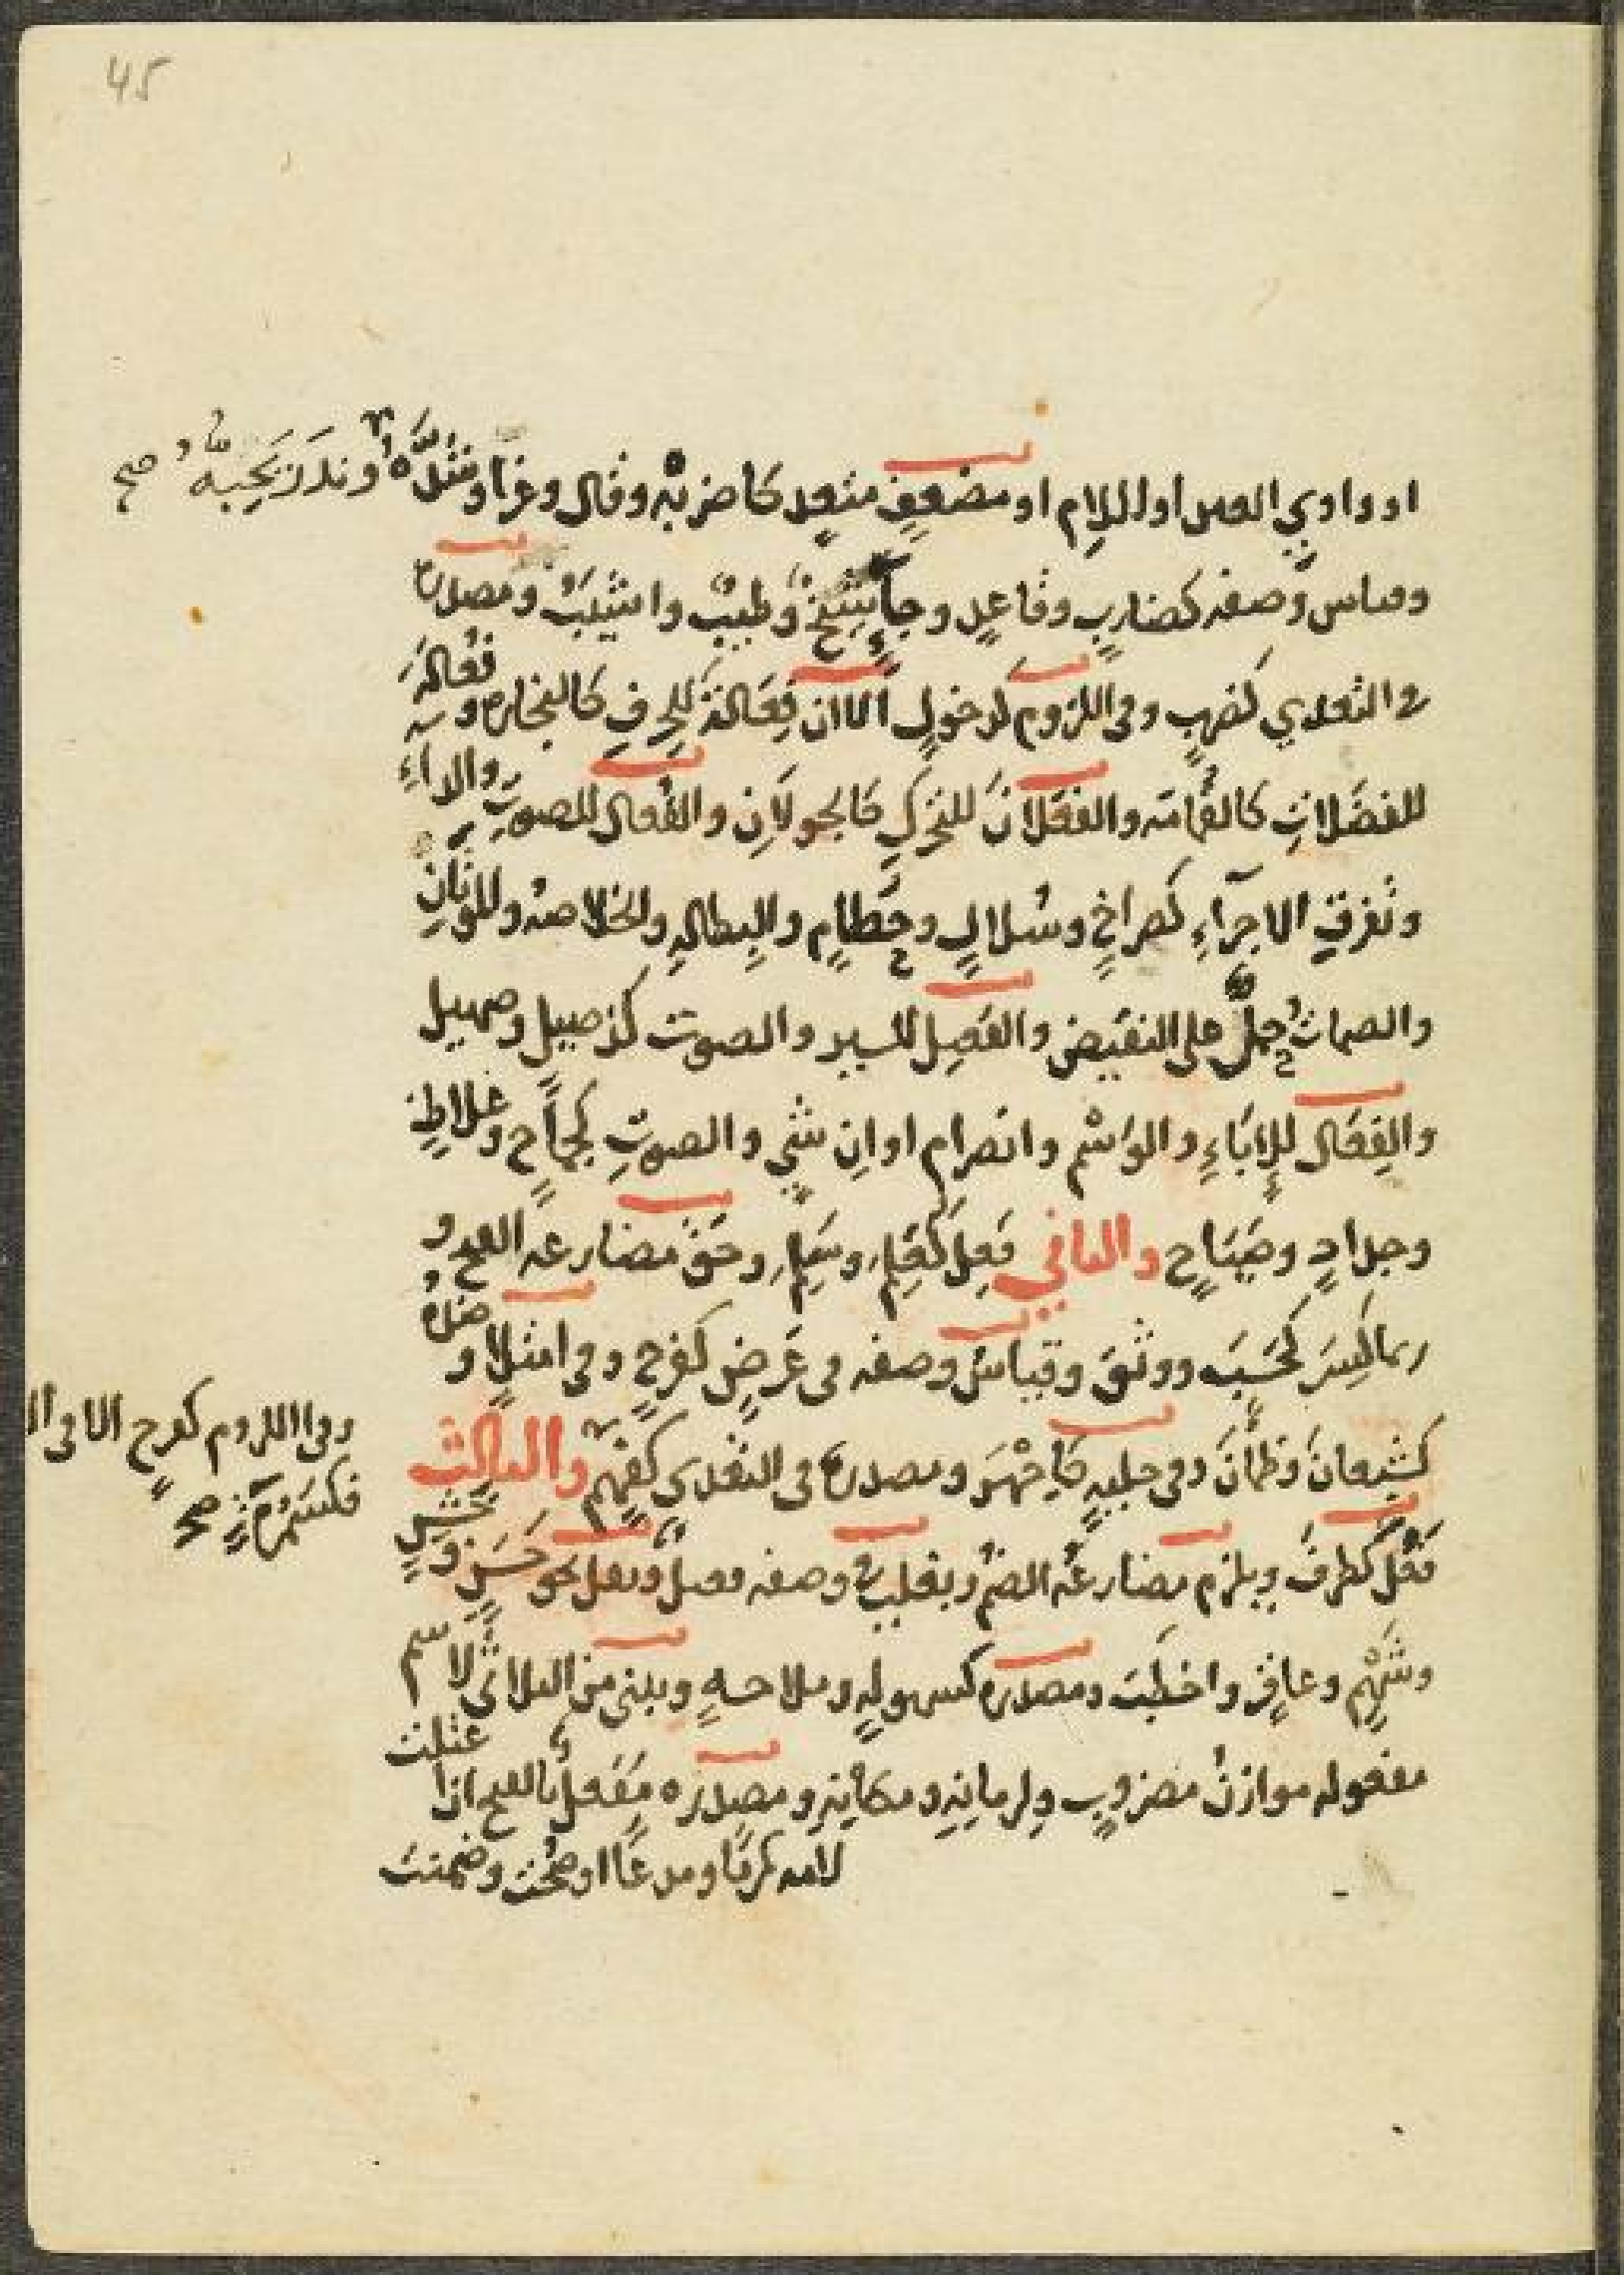 45
او واوي العين او اللامِ او مضعفٍ متعدٍ كاضربُه وقال وغزا وشلَّهُ
ونَدَرَ يَحِبُّهُ صح
وقياس وصفه كضاربٍ وقاعدٍ وجاءٍ وشيخٌ وطبيبٌ واشيبُ ومصدره
في التعدي كضربٍ وفي اللزوم كدخولٍ الا ان فِعَالةً للحِرفِ كالنجاره وفُعالةً
للفضلاتِ كالقُمامة والفَعَلانَ للتحركِ كالجولانِ والفُعال للصوتِ والداءِ
وتفرقِ الاجزاءِ كصراخٍ وسُلالٍ وحُطامٍ والبِطاله والخلاصه وللوثانِ
والصمات حملٌ على النقيض والفَعِيل للسير والصوت كذميلٍ وصهيل
والفِعَال للإِبَاءِ والوَسْم وانصرام اوانِ شيءٍ والصوتِ كجماحٍ وعلاطٍ
وجدادٍ وصِيَاحٍ والثاني فَعِلَ كعَلِمَ وسَلِمَ وحَقُّ مضارعه الفتح و
ربما كُسِرَ كحَسِبَ ووثقَ وقياسُ وصفه في عَرَضٍ كفرحٍ وفي امتلاءٍ وضده
كشبعانَ وظمآنَ وفي حليةٍ كاجْهَرَ ومصدره في التعدي كفَهْمٍ والثالث
وفي اللزوم كفرحٍ الا في ال
فكسُمْرَةٍ صح
فَعُلَ كظرفَ ويلزم مضارعَهُ الضمُّ ويغلب في وصفه فعيلٌ وفعل نحو حَسَنٍ وخَشِنٍ
وشَهْمٍ وعاقرٍ واخطبَ ومصدره كسهولةٍ وملاحةٍ ويبنى من الثلاثي لاسم
مفعوله موازنُ مضروبٍ ولزمانِهِ ومكانِهِ ومصدره مَفْعَلٌ بالفتح اذا عتلت
لامه كمرمًا ومدعًا او صحت وضمت